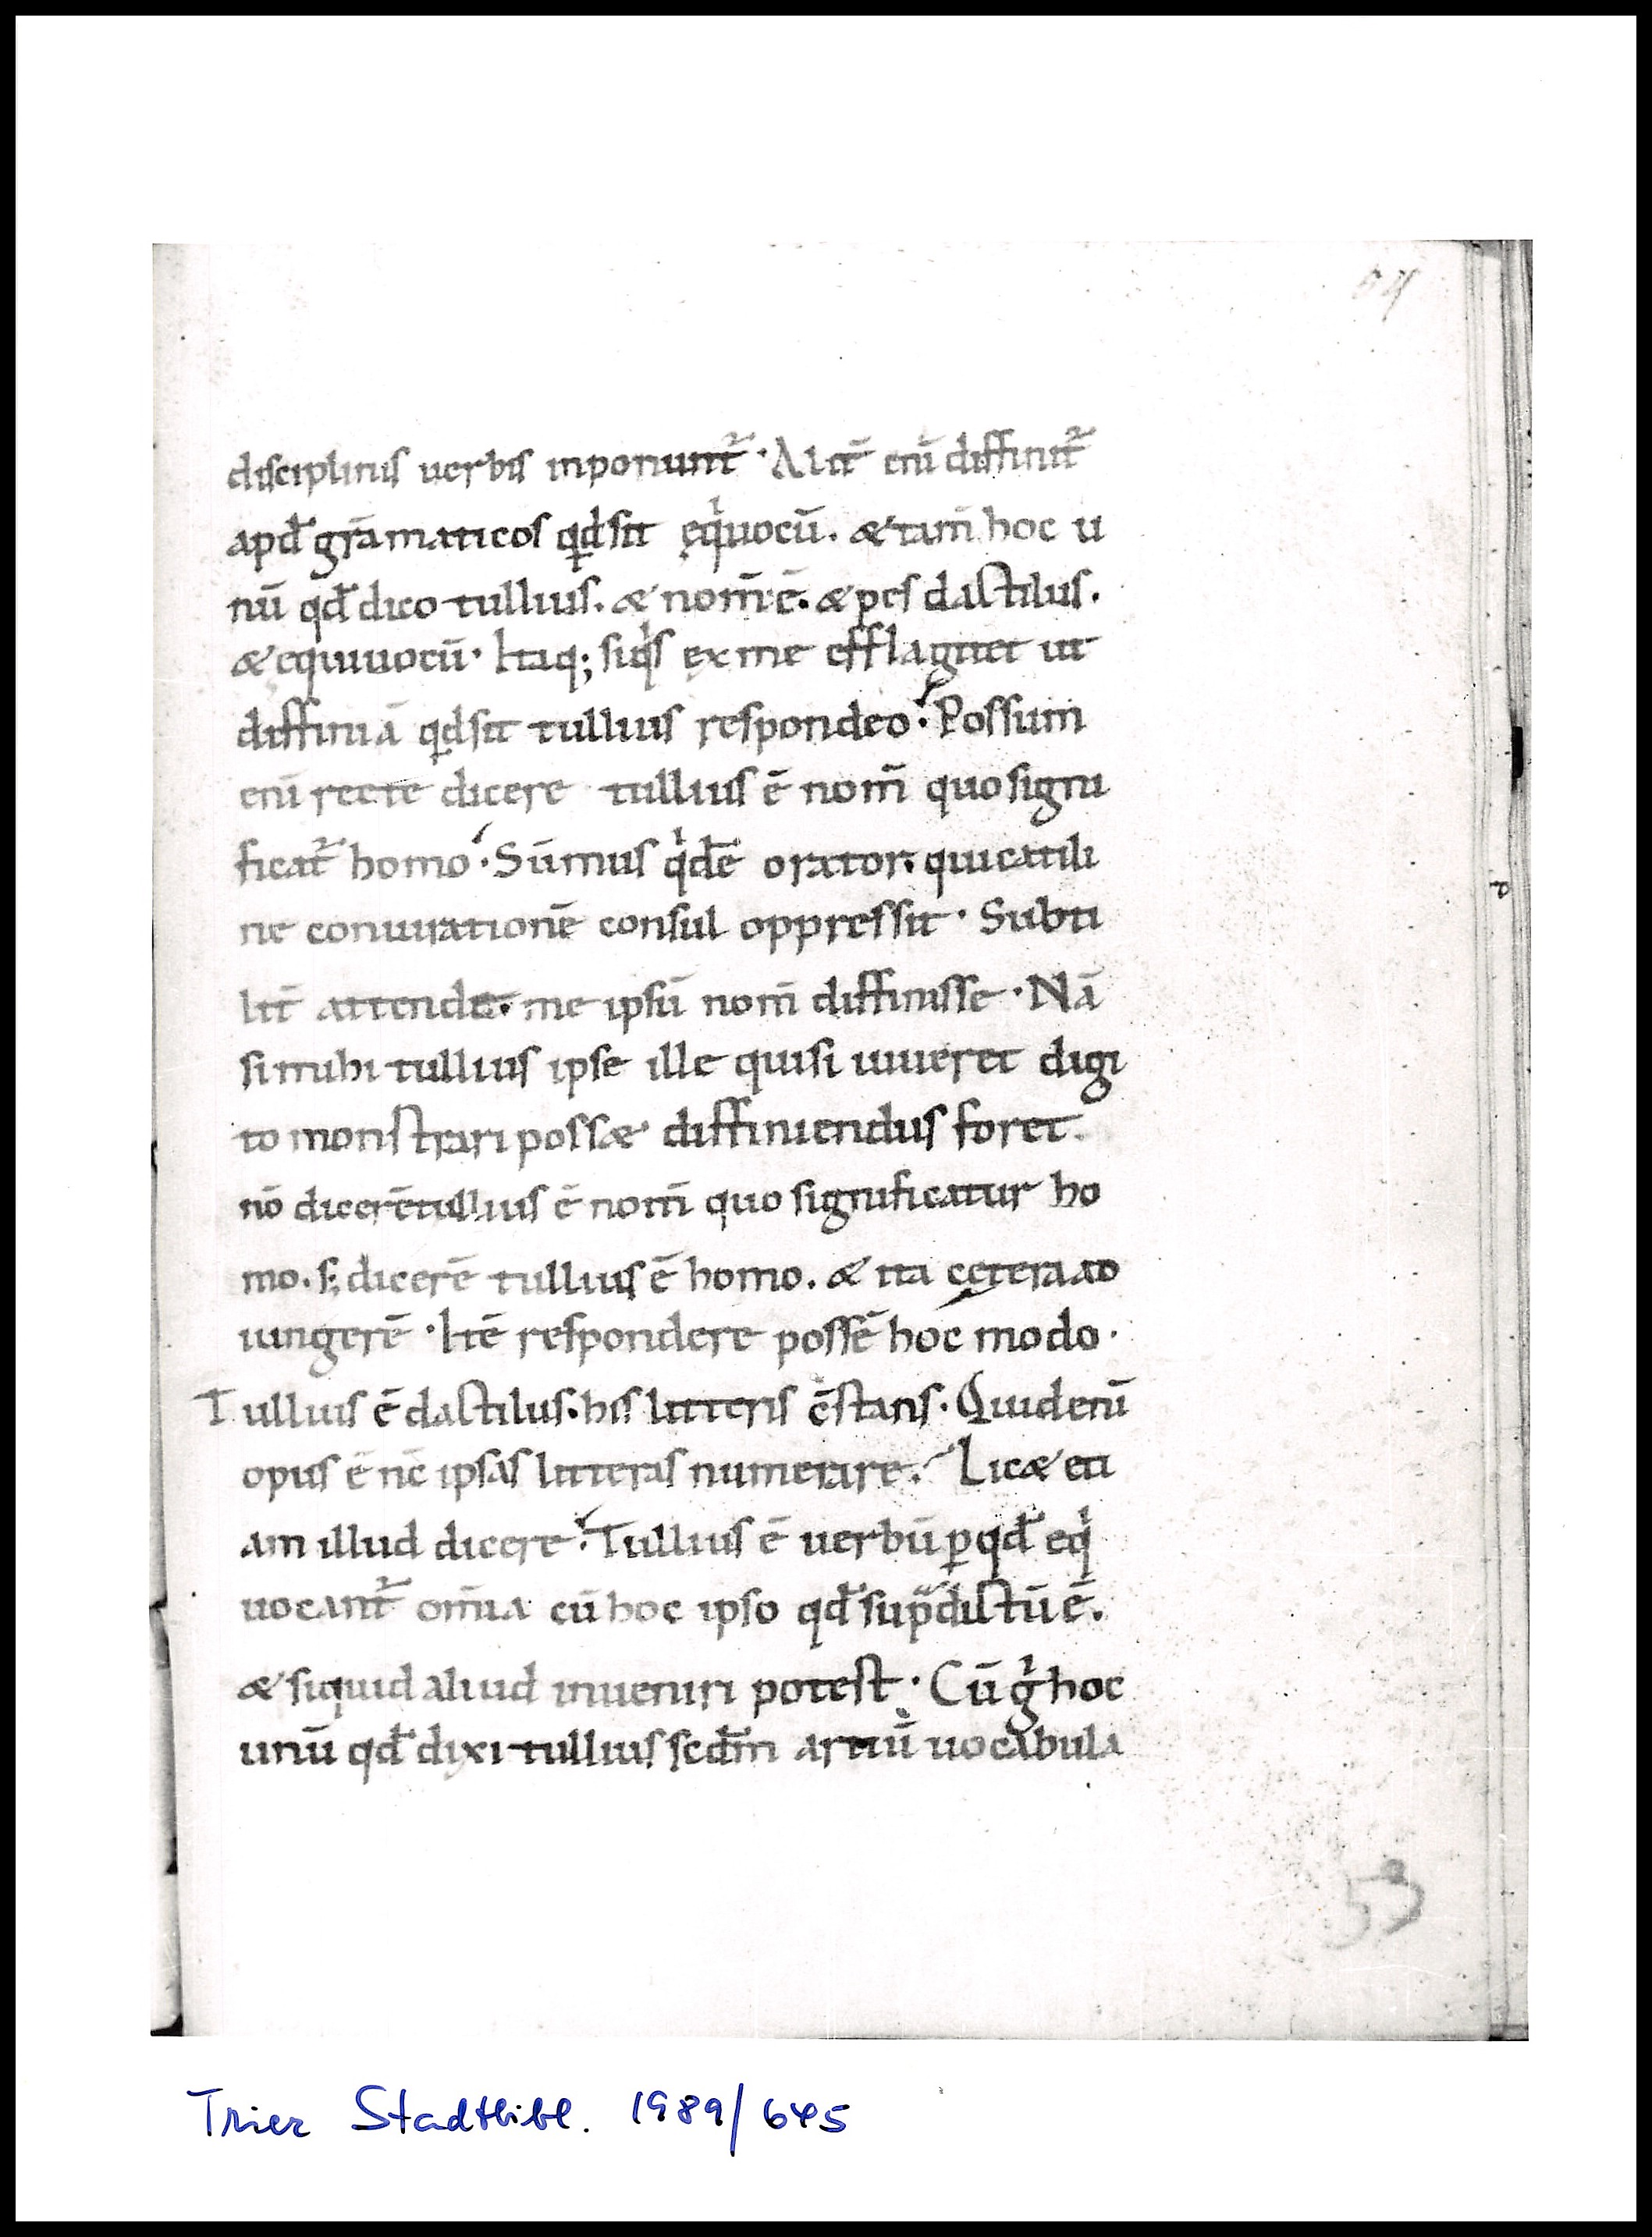 64
disciplinis uerbis inponunt᷑ · Alit̄ enī diffinit᷑
apđ grāmaticos qđ sit ęqͥuocū. & tam̄ hoc u
nū qđ dico tullius. & nom̄ ē. & pes dactilus.
& equiuocū · Itaq; siqͥs ex me efflagitet ut
diffiniā qđ sit tullius respondeo · Possum
enī recte dicere tullius ē nom̄ quo signi
ficat᷑ homo · Sūmus qͥdē orator. qui catili
ne coniurationē consul oppressit · Subti
lit̄ attende. me ipsū nom̄ diffinisse · Nā
si mihi tullius ipse ille qui si uiueret digi
to monstrari poss& diffiniendus foret.
nō dicerē tullius ē nom̄ quo significatur ho
mo. s; dicerē tullius ē homo. & ita cętera ad
iungerē · Itē respondere possē hoc modo ·
Tullius ē dactilus. his litteris c̄stans · Quid enī
opus ē nc̄ ipsas litteras numerare. Lic& eti
am illud dicere · Tullius ē uerbū ꝑ qđ eqͥ
uocant᷑ om̄ia cū hoc ipso qđ sup̄dictū ē.
& siquid aliud inueniri potest · Cū gͥ hoc
unū qđ dixi tullius scđm artiū uocabula
53
Trier Stadtbibl. 1989/645